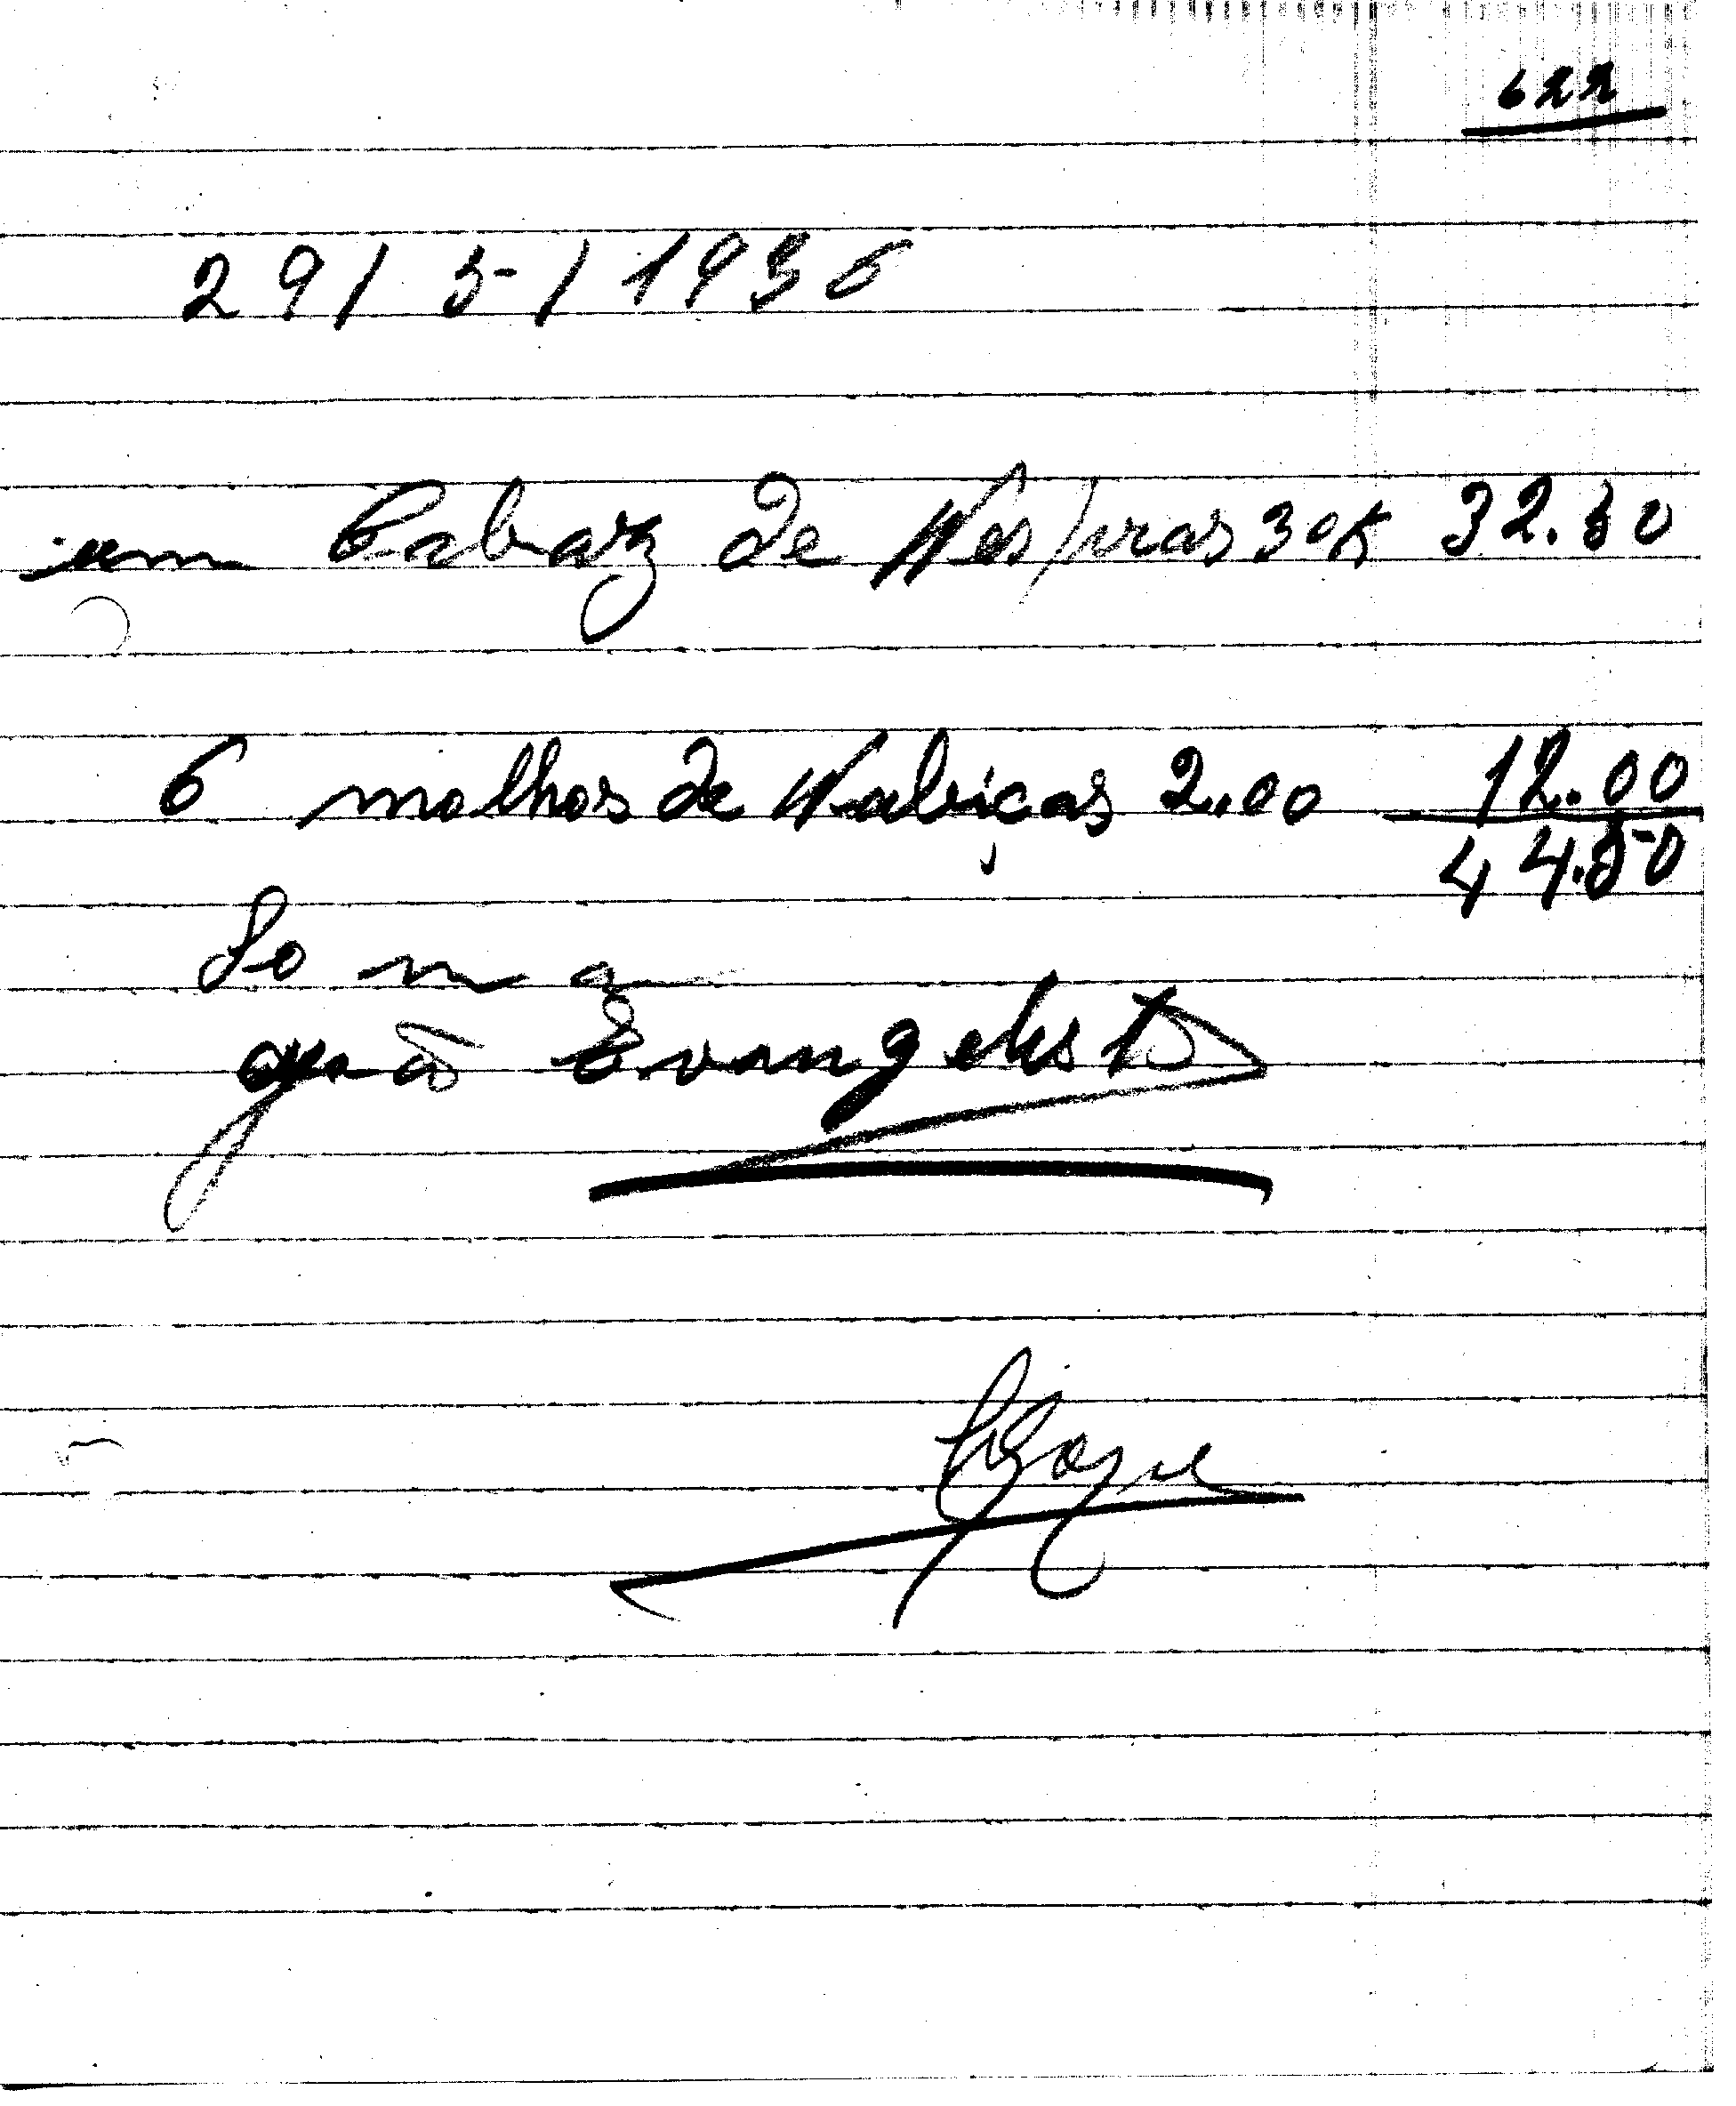 622
29/5/1936
um Cabaz de Nespras 30K 32.50
6 molhos de Nabiças 2.00 12.00
44.50
Soma
João Evangelista